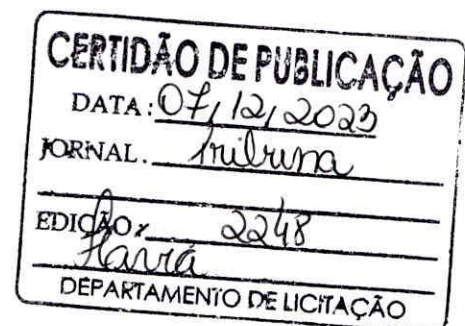 CERTIDÃO DE PUBLICAÇÃO
DATA: 07/12/2023
JORNAL. Tribuna
EDIÇÃO: 2248
Flavia
DEPARTAMENTO DE LICITAÇÃO